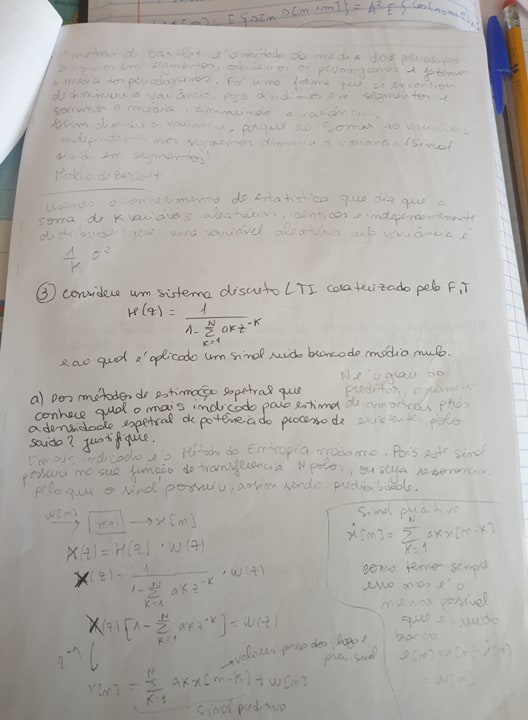 x[m] = E{
O método de Bartlett é o método da média dos periodogramas
a média dos periodogramas. Foi uma forma que se encontrou
de diminuir a variância, pois dividimos em segmentos e
somamos a média diminuindo a variância.
Assim diminui a variância, porque ao somar as variáveis
independentes nos segmentos diminui a variância (sinal
dividido em segmentos)
Método de Bartlett
Usando o conhecimento de estatística que diz que a
soma de K variáveis aleatórias, identicas e independentemente
distribuídas gera uma variável aleatória cuja variância é
1/K σ²
③ Considere um sistema discreto LTI caraterizado pela F.T
H(z) = 1 / (1 - Σ_{K=1}^{N} aK z^{-K})
e ao qual é aplicado um sinal ruido branco de média nula.
a) Dos métodos de estimação espetral que
conhece qual o mais indicado para estimar
a densidade espetral de potência do processo de
saída? Justifique.
N é o grau do
preditor, o número
de amostras
O mais indicado é o Método da Entropia máxima. Pois este sinal
possui na sua função de transferência N polos, ou seja ressonancias
pelo que o sinal possui, assim sendo, predibilidade.
W[m] → [H(z)] → x[m]
X(z) = H(z) · W(z)
X(z) = 1 / (1 - Σ_{K=1}^{N} aK z^{-K}) · W(z)
X(z) [1 - Σ_{K=1}^{N} aK z^{-K}] = W(z)
z^{-1}
valores passados, logo é
previsivel
x[m] = Σ_{K=1}^{N} aK x[m-K] + W[m]
sinal preditivo
Sinal preditivo
x̂[m] = Σ_{K=1}^{N} aK x[m-K]
como temos sempre
erro mas é o
menor possível
que é o ruido
branco
e[m] = x[m] - x̂[m]
= W[m]